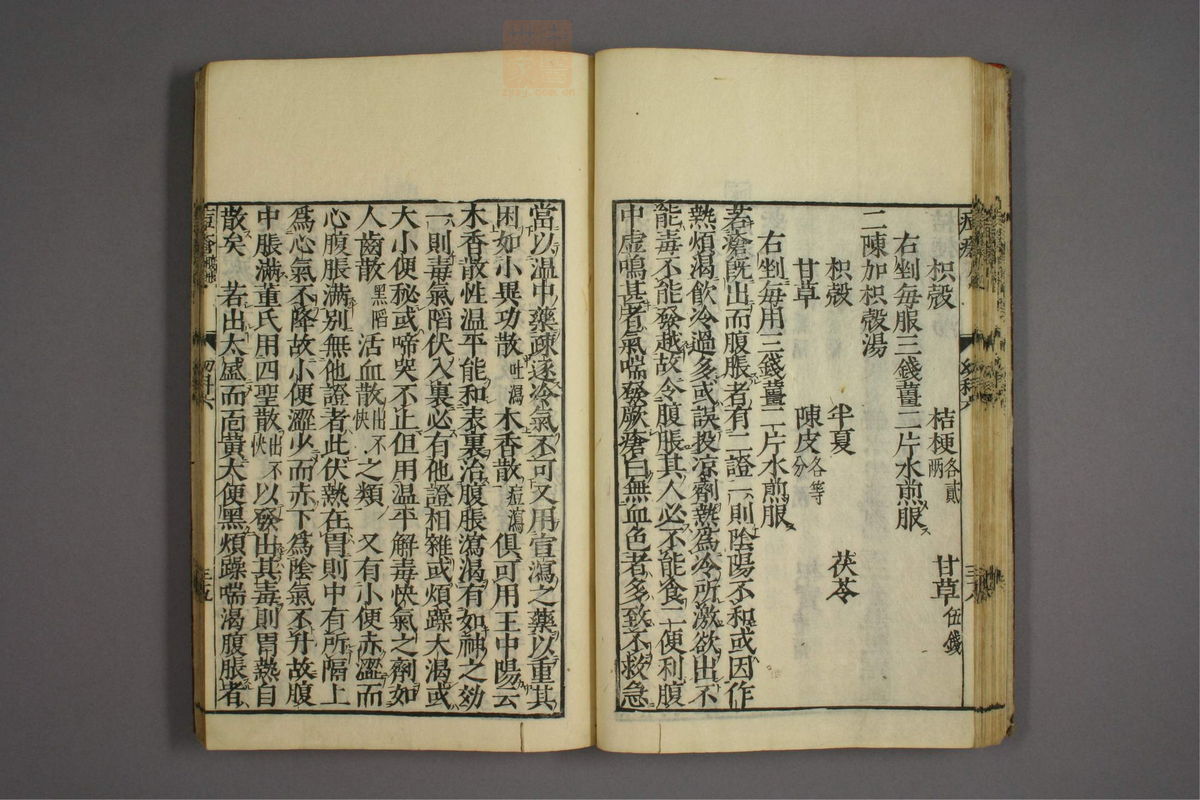 枳殼　桔梗各貳兩　甘草伍錢
右剉每服三錢薑二片水煎服
二陳加枳殼湯
枳殼　半夏　茯苓
甘草　陳皮各等分
右剉每用三錢薑二片水煎服
若瘡既出而腹脹者有二證一則陰陽不和或因作
熱煩渴飲冷過多或誤投凉劑熱爲冷所激欲出不
能毒不能發越故令腹脹其人必不能食二便利腹
中虚鳴甚者氣喘發厥瘡白無血色者多致不救急
當以温中藥疎逐冷氣不可又用宣瀉之藥以重其
困如小異功散吐瀉木香散痘瀉俱可用王中陽云
木香散性温平能和表裏治腹脹瀉渴有如神之効
一則毒氣䧟伏入裏必有他證相雜或煩躁大渴或
大小便秘或啼哭不止但用温平解毒快氣之劑如
人齒散黑䧟活血散出不快之類　又有小便赤澀而
心腹脹滿别無他證者此伏熱在胃則中有所隔上
爲心氣不降故小便澀少而赤下爲陰氣不升故腹
中脹滿董氏用四聖散出不快以發出其毒則胃熱自
散矣　若出太盛而面黃大便黑煩躁喘渴腹脹者
zysy.com.cn